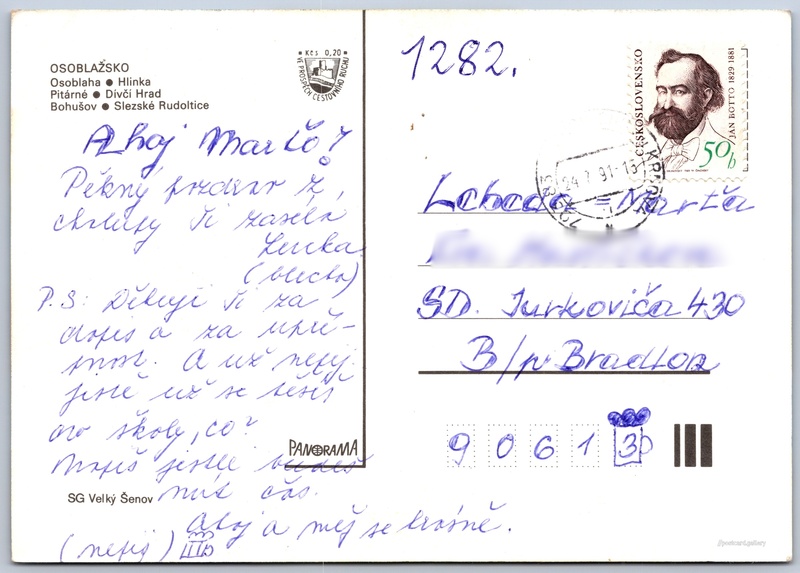 OSOBLAŽSKO
Osoblaha ● Hlinka
Pitárné ● Dívčí Hrad
Bohušov ● Slezské Rudoltice
Kčs 0,20
VE PROSPĚCH CESTOVNÍHO RUCHU
1282.
ČESKOSLOVENSKO
JAN BOTTO 1829 1881
50h
24.7.91-13
Ahoj Marťo!
Pěkný pozdrav z
chalupy Ti zasílá
Lenka
P.S: Děkuji Ti za
dopis a za upřím-
nost. A už nepij.
Jestli už se těšíš
do školy, co?
Napiš jestli budeš
mít čas.
Ahoj a měj se krásně.
(nepij)
Marťa
SD. Jurkoviča 430
B/p Bradlom
90613
PANORAMA
SG Velký Šenov